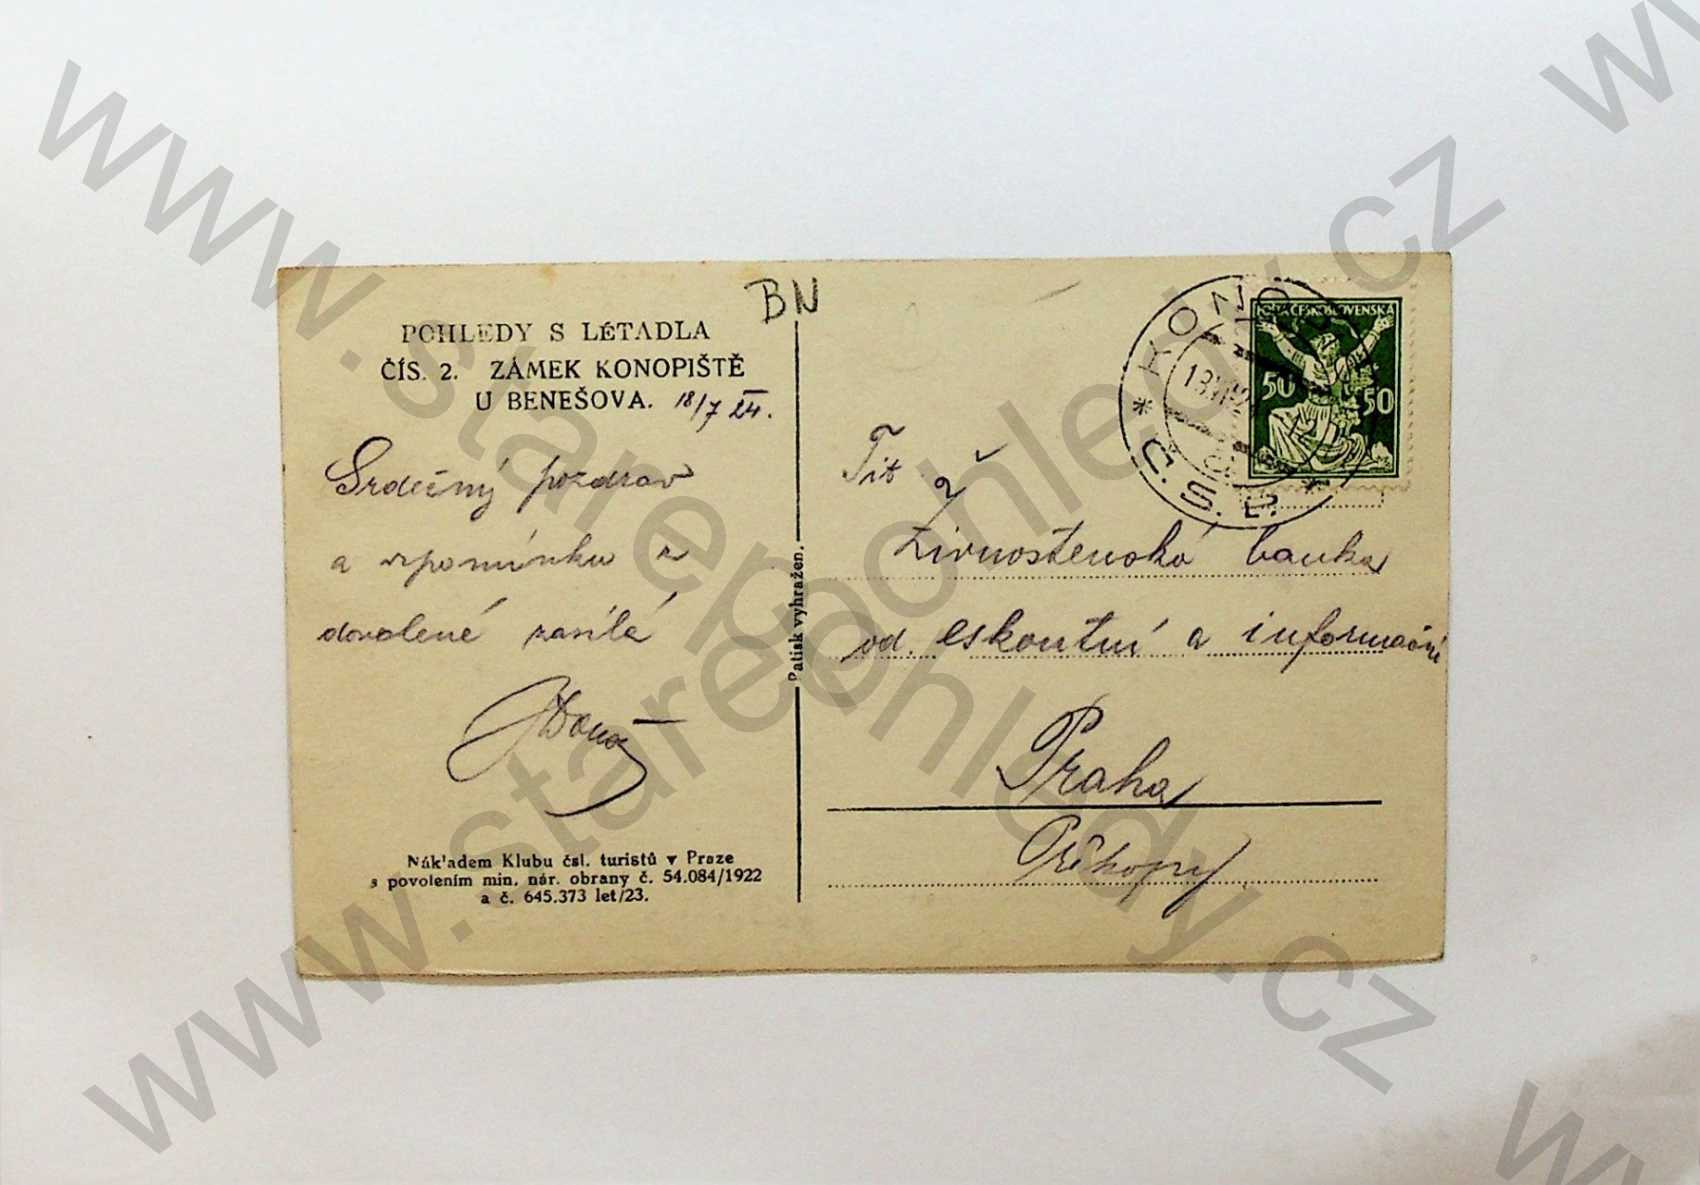 BN
POHLEDY S LÉTADLA
ČÍS. 2. ZÁMEK KONOPIŠTĚ
U BENEŠOVA. 18/7 24.
Srdečný pozdrav
a vzpomínku z
dovolené zasílá
Nákladem Klubu čsl. turistů v Praze
s povolením min. nár. obrany č. 54.084/1922
a č. 645.373 let/23.
Patisk vyhražen.
Tit
Živnostenská banka
od. eskontní a informační
Praha
Příkopy
POŠTA ČESKOSLOVENSKÁ
50 50
Č.S.P.
www.starepohledy.cz
www.starepohledy.cz